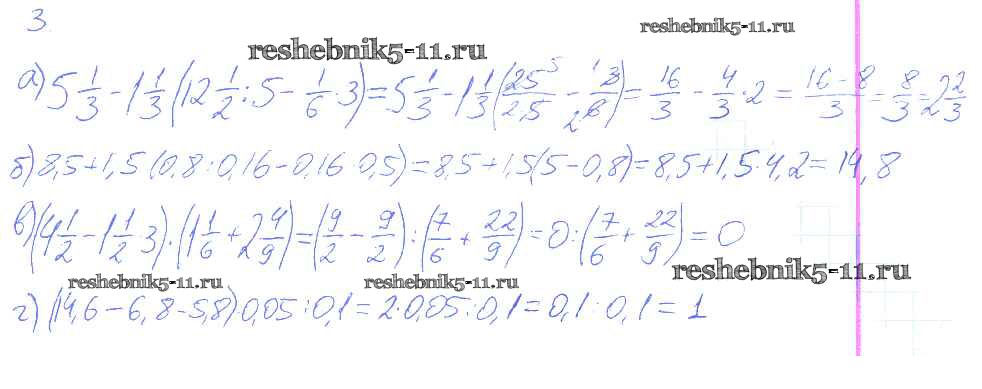 3.
reshebnik5-11.ru
reshebnik5-11.ru
а) 5 1/3 - 1 1/3 (12 1/2 : 5 - 1/6 · 3) = 5 1/3 - 1 1/3 (25 5/2·5 - 1 3/2 6) = 16/3 - 4/3 · 2 = 16-8/3 = 8/3 = 2 2/3
б) 8,5 + 1,5 (0,8 : 0,16 - 0,16 · 0,5) = 8,5 + 1,5 (5 - 0,8) = 8,5 + 1,5 · 4,2 = 14,8
в) (4 1/2 - 1 1/2 3) · (1 1/6 + 2 4/9) = (9/2 - 9/2) : (7/6 + 22/9) = 0 : (7/6 + 22/9) = 0
reshebnik5-11.ru
reshebnik5-11.ru
reshebnik5-11.ru
г) (14,6 - 6,8 - 5,8) · 0,05 : 0,1 = 2 · 0,05 : 0,1 = 0,1 : 0,1 = 1